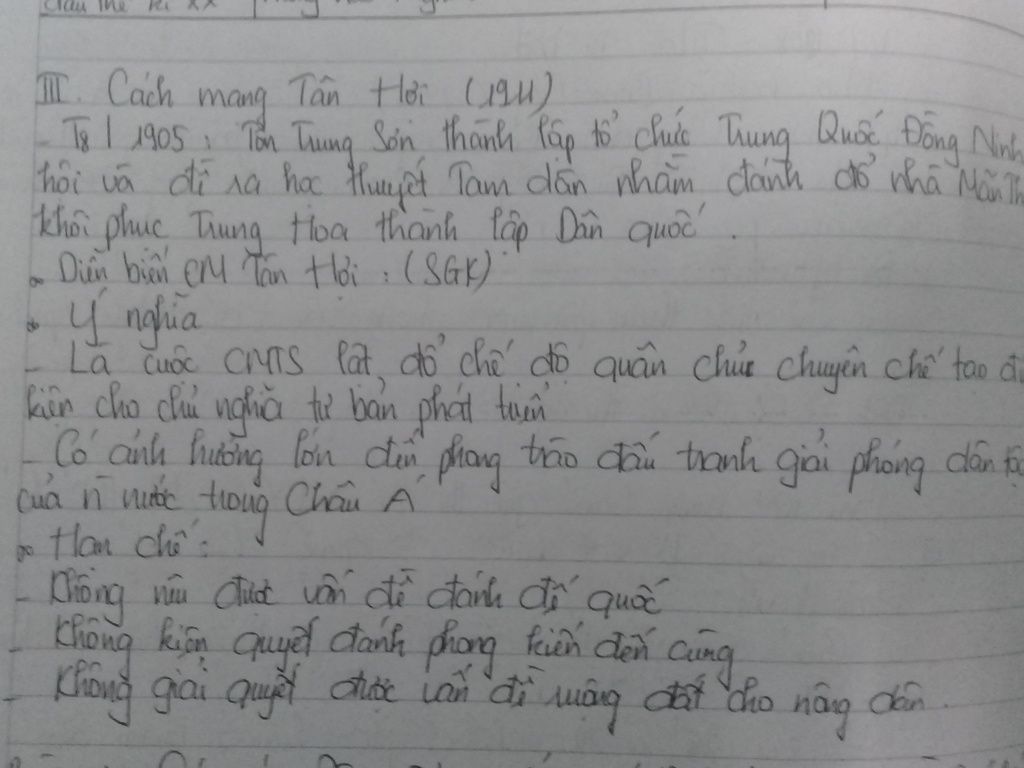 đầu thế kỉ XX
III. Cách mạng Tân Hợi (1911)
- T8 / 1905 : Tôn Trung Sơn thành lập tổ chức Trung Quốc Đồng Minh
hội và đề ra học thuyết Tam dân nhằm đánh đổ nhà Mãn Th
khôi phục Trung Hoa thành lập Dân quốc.
• Diễn biến CM Tân Hợi : (SGK)
• Ý nghĩa
- Là cuộc CMTS lật đổ chế độ quân chủ chuyên chế tạo đi
kiện cho chủ nghĩa tư bản phát triển
- Có ảnh hưởng lớn đến phong trào đấu tranh giải phóng dân tộ
của n nước trong Châu Á
• Hạn chế :
- Không nêu được vấn đề đánh đế quốc
- Không kiên quyết đánh phong kiến đến cùng
- Không giải quyết được vấn đề ruộng đất cho nông dân.